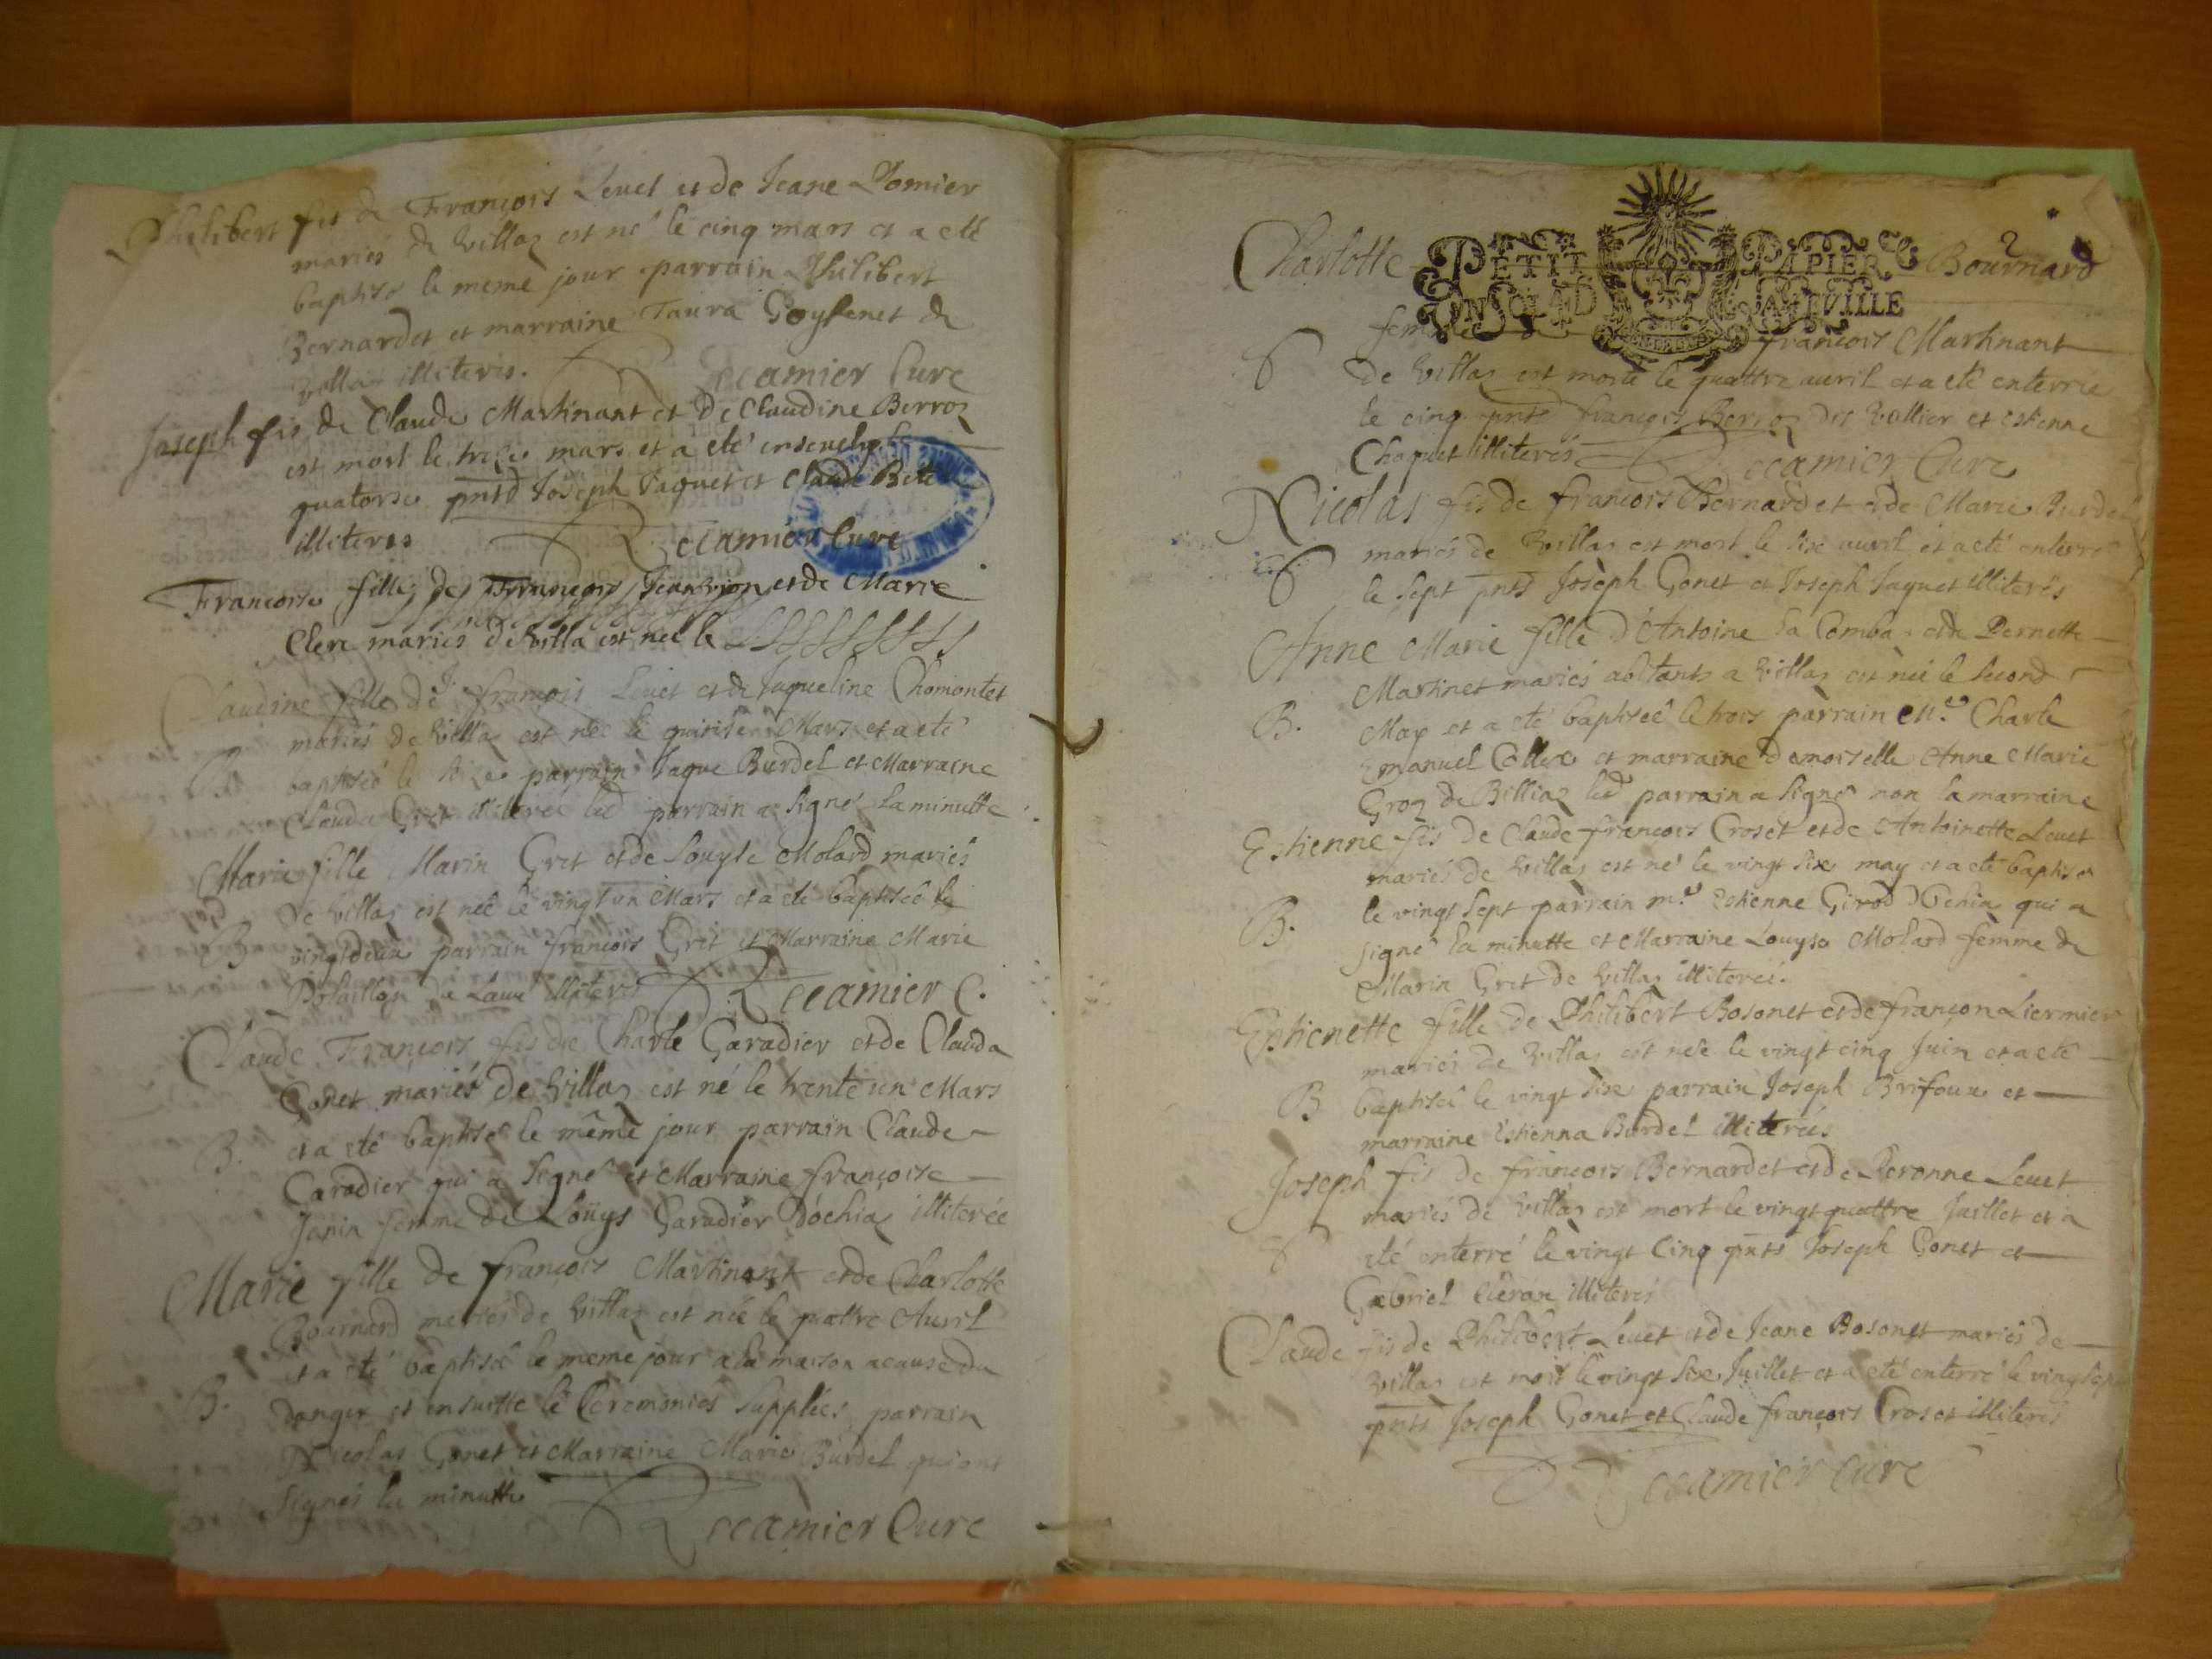 Philibert fis de François Levet et de Jeane Pomier
mariés de villaz est né le cinq mars et a eté
baptisé le meme jour parrain Philibert
Bernardet et marraine Goysenet de
villaz illiteris.
Recamier Curé
Joseph fis de Claude Martinant et de Claudine Berroz
est mort le treize mars et a eté enseveli le
quatorse pntd Joseph Jaquet et Claude
illiteres Recamier Curé
Francoise fille de François et de Marie
Clerc mariés de villa est née le
Claudine fille de françois Levet et de Jaqueline Chomontet
mariés de villaz est née le quinse Mars et a eté
B baptisée le seize parrain Jaque Burdel et Marraine
Clauda Gret illiterée led parrain a signé la minutte
Marie fille Marin Gret et de Louyse Molard mariés
de villaz est née le vingt un Mars et a eté baptisée le
B vingtdeux parrain françois Gret et Marraine Marie
de illiteres Recamier C.
Claude François fis de Charle Garadier et de Clauda
Gonet mariés de villaz est né le trente un Mars
B. et a eté baptisé le même jour parrain Claude
Garadier qui a signé et Marraine françoise
Janin femme de Loüys Garadier d'ochiaz illiterée
Marie fille de françois Martinant et de Charlotte
Bournard mariés de villaz est née le quattre Avril
et a eté baptisée le meme jour a la maison a cause du
B. danger et ensuitte lé Ceremonies supplées parrain
Nicolas Gonet et Marraine Marie Burdel qui ont
signés la minutte
Recamier Curé
2
PETIT PAPIER
Charlotte Bournard
femme de françois Martinant
de villaz est morte le quattre avril et a eté enterrée
le cinq pntd françois Berroz dit Vullier et estienne
Chaquet illiterés Recamier Curé
Nicolas fis de françois Bernardet et de Marie Burdel
mariés de villaz est mort le sixe avril et a eté enterré
le sept pnts Joseph Gonet et Joseph Jaquet illiterés
Anne Marie fille d'Antoine la Comba et de Pernette
Martinet mariés abitants a villaz est née le second
B. May et a eté baptisée le trois parrain Mre. Charle
Emanuel Collex et marraine demoiselle Anne Marie
Groz de Billiaz led parrain a signé non la marraine
Estienne fis de Claude françois Croset et de Antoinette Levet
mariés de villaz est né le vingt sixe may et a eté baptisé
B. le vingt sept parrain mre. Estienne Girod d'Ochiaz qui a
signé la minutte et Marraine Louyse Molard femme de
Marin Gret de villaz illiterée.
Estienette fille de Philibert Bosonet et de françon Liermier
mariés de villaz est née le vingt cinq Juin et a eté
B baptisée le vingt sixe parrain Joseph Brifoux et
marraine Estienna Burdel illiterés
Joseph fis de françois Bernardet et de Peronne Levet
mariés de villaz est mort le vingt quattre Juillet et a
eté enterré le vingt Cinq pnts Joseph Gonet et
Gabriel illiterés
Claude fis de Philibert Levet et de Jeane Bosonet mariés de
villaz est mort le vingt sixe Juillet et a eté enterré le vingt sept
pnts Joseph Gonet et Claude françois Croset illiterés
Recamier Curé